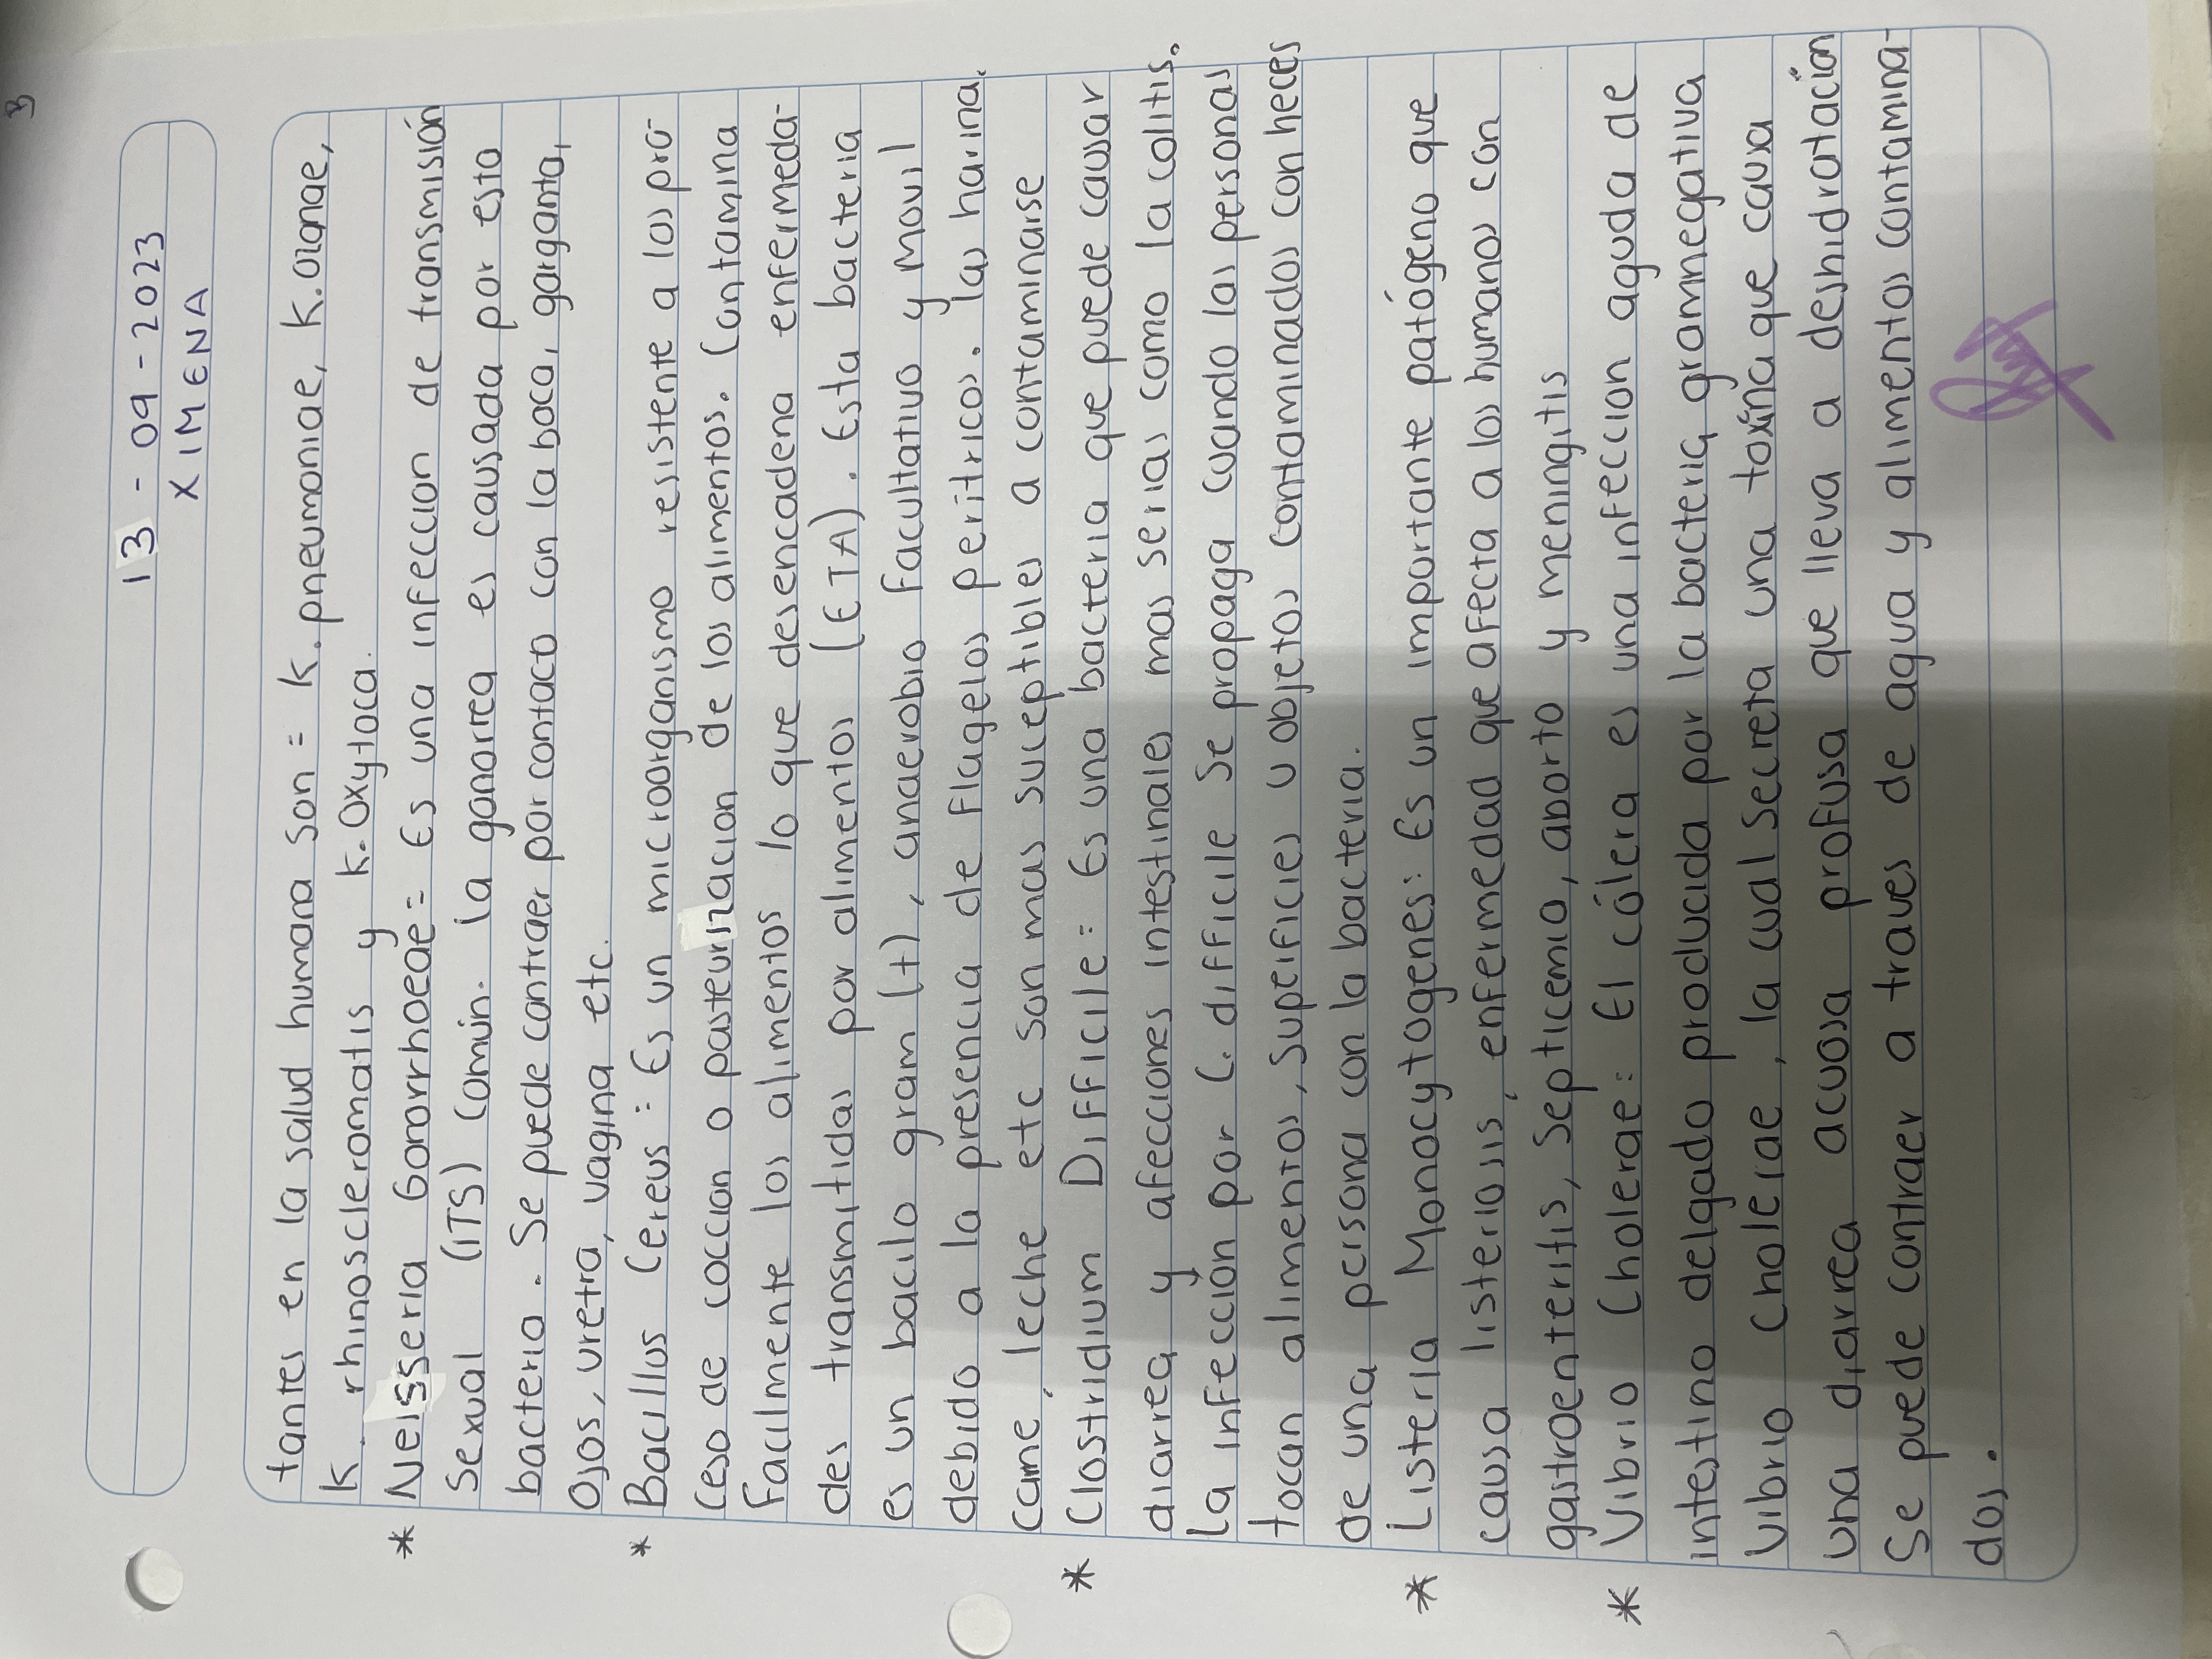 13 - 09 - 2023
XIMENA
tantes en la salud humana son = K. pneumoniae, K. ozanae,
K. rhinoscleromatis y K. oxytoca.
* Neisseria Gonorrhoeae = Es una infeccion de transmisión
sexual (ITS) común. la gonorrea es causada por esta
bacteria. Se puede contraer por contaco con la boca, garganta,
ojos, uretra, vagina etc.
* Bacillus Cereus: Es un microorganismo resistente a los pro-
ceso de coccion o pasteurizacion de los alimentos. Contamina
facilmente los alimentos lo que desencadena enfermeda-
des transmitidas por alimentos (ETA). Esta bacteria
es un bacilo gram (+), anaerobio facultativo y movil
debido a la presencia de flagelos peritricos. las harina.
carne, leche etc son mas suceptibles a contaminarse
* Clostridium Difficile: Es una bacteria que puede causar
diarrea y afecciones intestinales mas serias como la colitis.
La infección por C. difficile se propaga cuando las personas
tocan alimentos, superficies u objetos contaminados con heces
de una persona con la bacteria.
* Listeria Monocytogenes: Es un importante patógeno que
causa listeriosis, enfermedad que afecta a los humanos con
gastroenteritis, septicemia, aborto y meningitis
* Vibrio Cholerae: El cólera es una infeccion aguda de
intestino delgado producida por la bacteria gramnegativa
Vibrio Cholerae, la cual secreta una toxina que causa
una diarrea acuosa profusa que lleva a deshidratación
Se puede contraer a traves de agua y alimentos contamina-
dos.